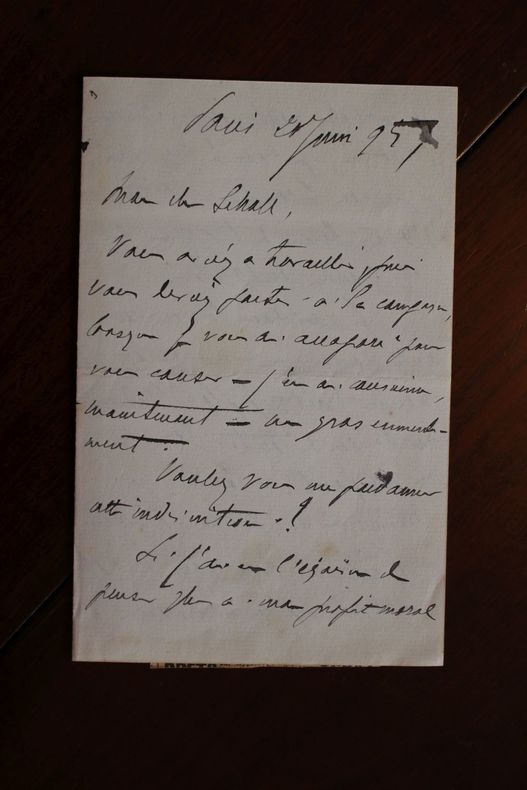 Paris 20 Juin 95
Mon cher Schall,
Vous aviez à travailler puis
vous deviez partir à la campagne,
lorsque je vous ai accaparé pour
vous causer — j'en ai
maintenant — un gros
ment.
Voulez vous me pardonner
cette indiscrétion !
Si j'ai eu l'égoïsme de
penser plus à mon profit moral